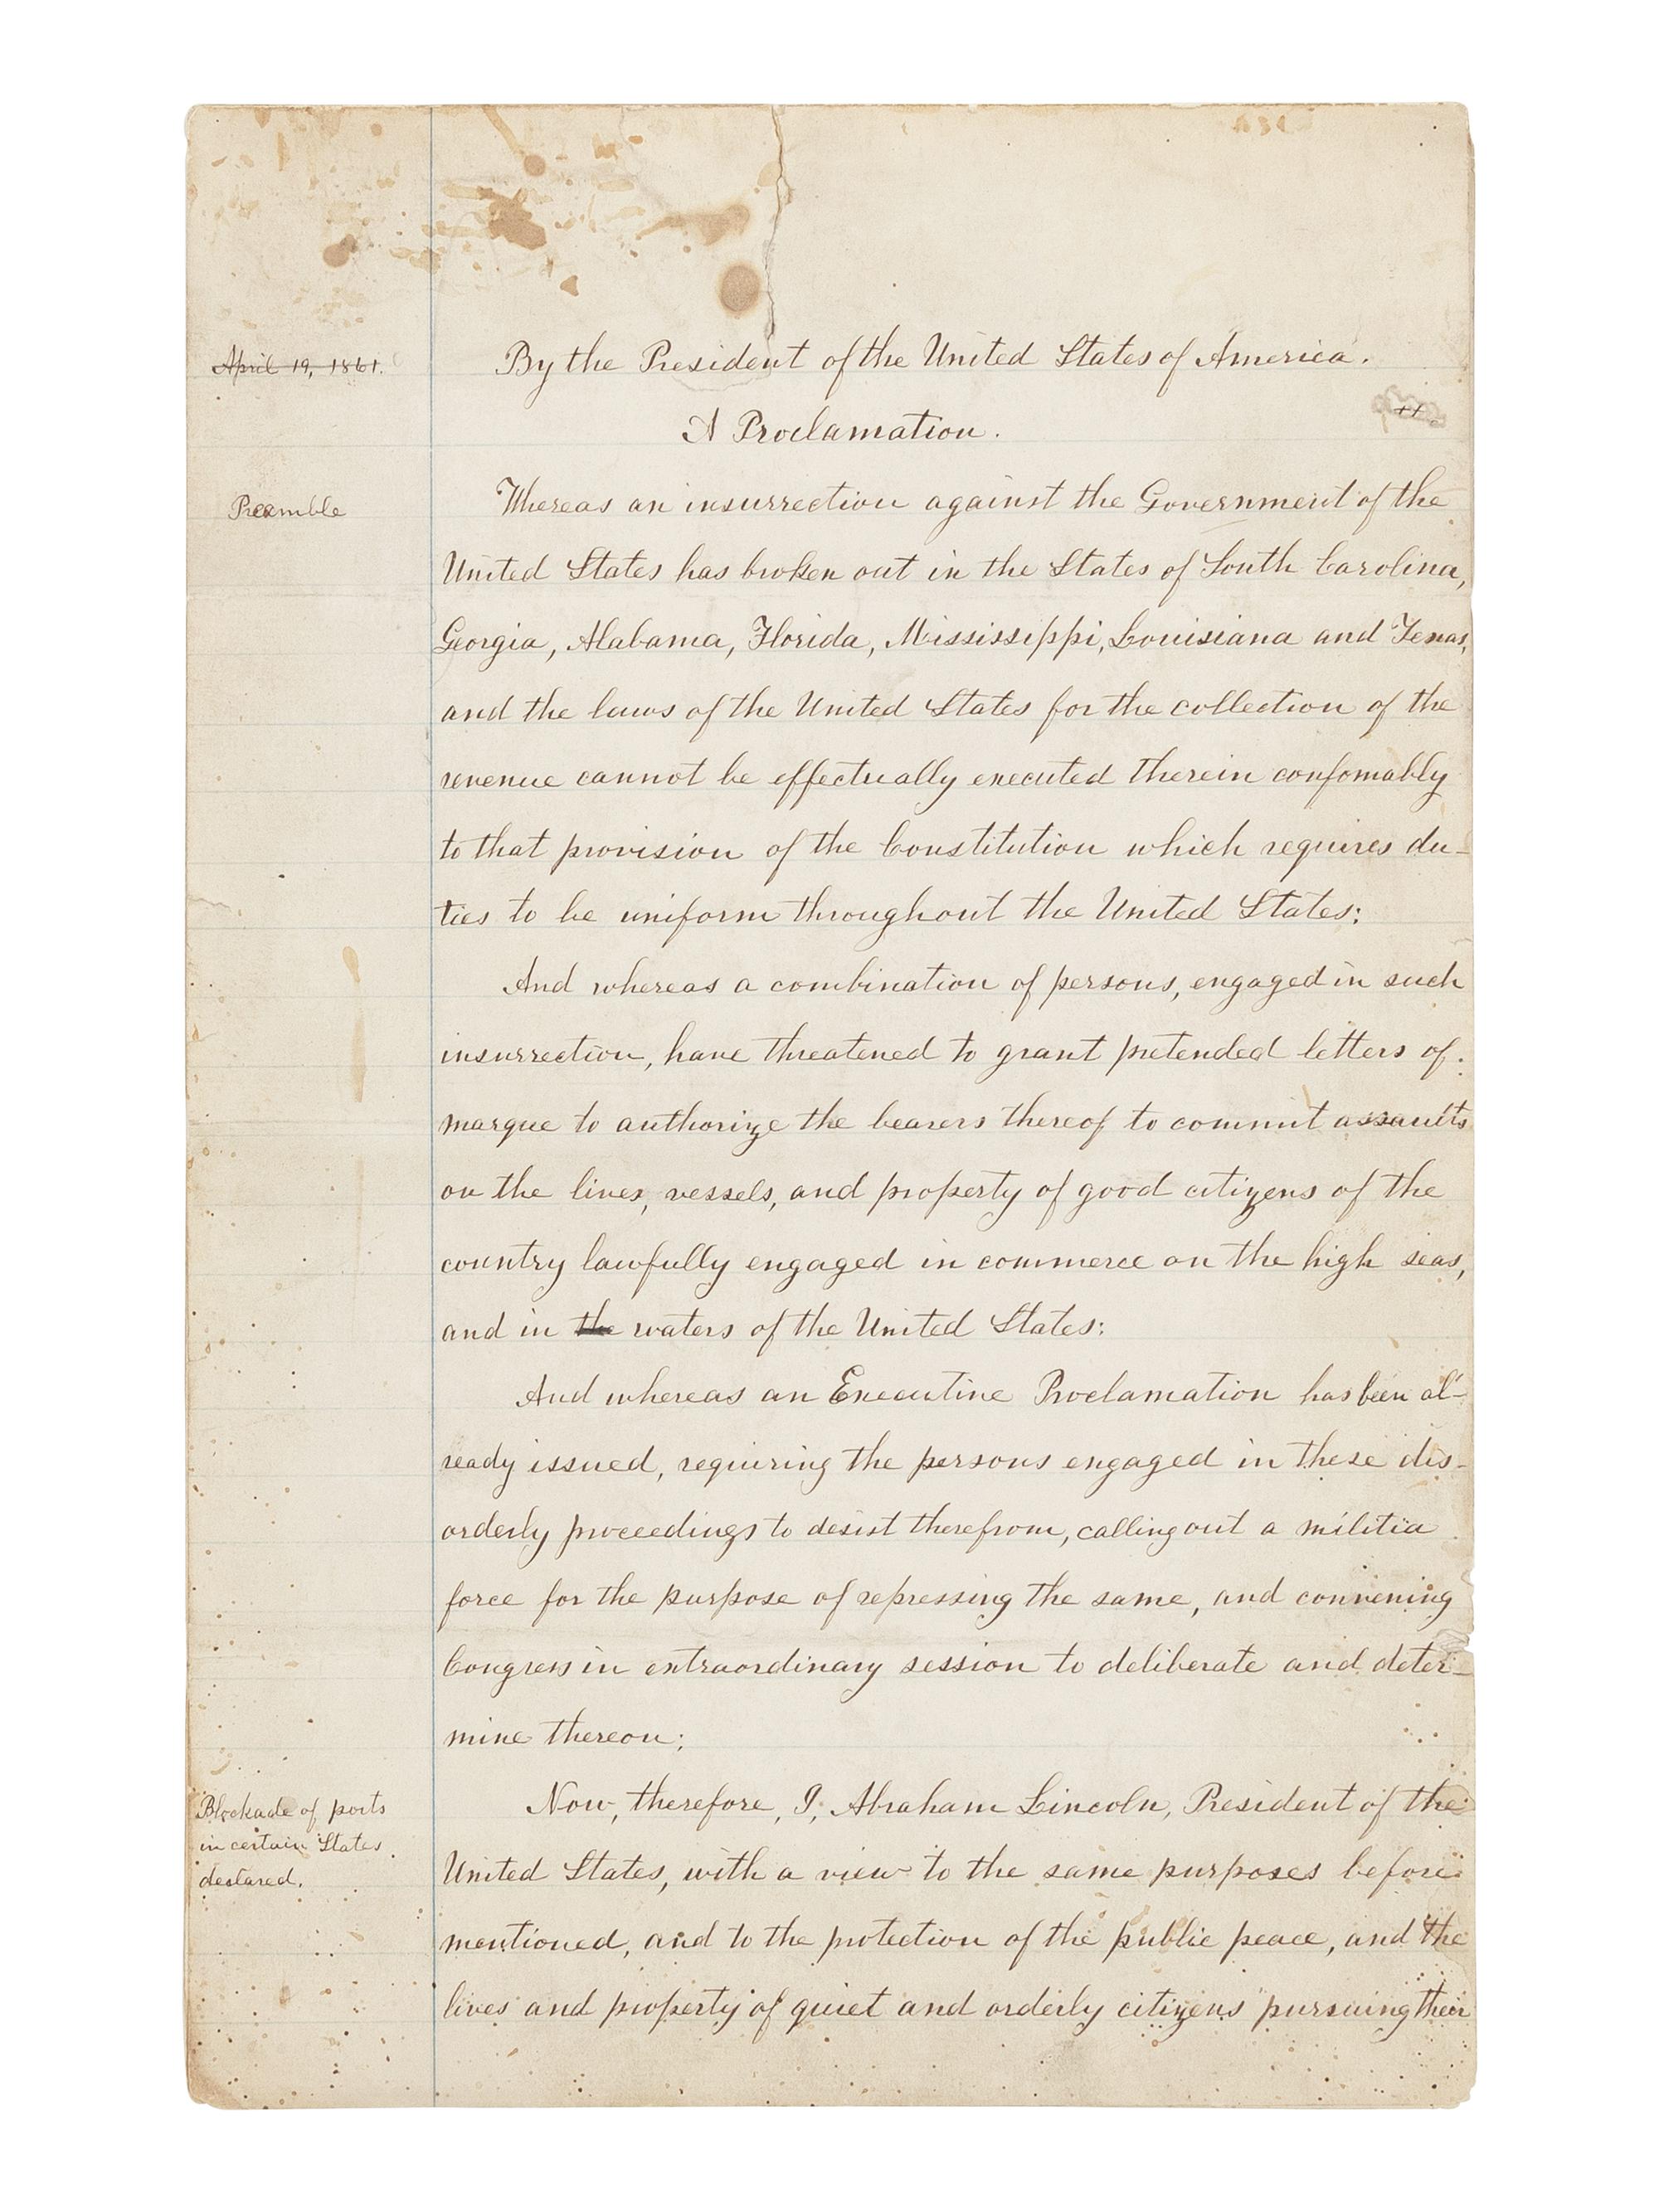 April 19, 1861.
By the President of the United States of America.
A Proclamation.
Preamble
Whereas an insurrection against the Government of the
United States has broken out in the States of South Carolina,
Georgia, Alabama, Florida, Mississippi, Louisiana and Texas,
and the laws of the United States for the collection of the
revenue cannot be effectually executed therein confomably
to that provision of the Constitution which requires du-
ties to be uniform throughout the United States:
And whereas a combination of persons, engaged in such
insurrection, have threatened to grant pretended letters of
marque to authorize the bearers thereof to commit assaults
on the lives, vessels, and property of good citizens of the
country lawfully engaged in commerce on the high seas,
and in the waters of the United States:
And whereas an Executive Proclamation has been al-
ready issued, requiring the persons engaged in these dis-
orderly proceedings to desist therefrom, calling out a militia
force for the purpose of repressing the same, and convening
Congress in extraordinary session to deliberate and deter-
mine thereon:
Now, therefore, I, Abraham Lincoln, President of the
United States, with a view to the same purposes before
mentioned, and to the protection of the public peace, and the
lives and property of quiet and orderly citizens pursuing their
Blockade of ports
in certain States
declared.